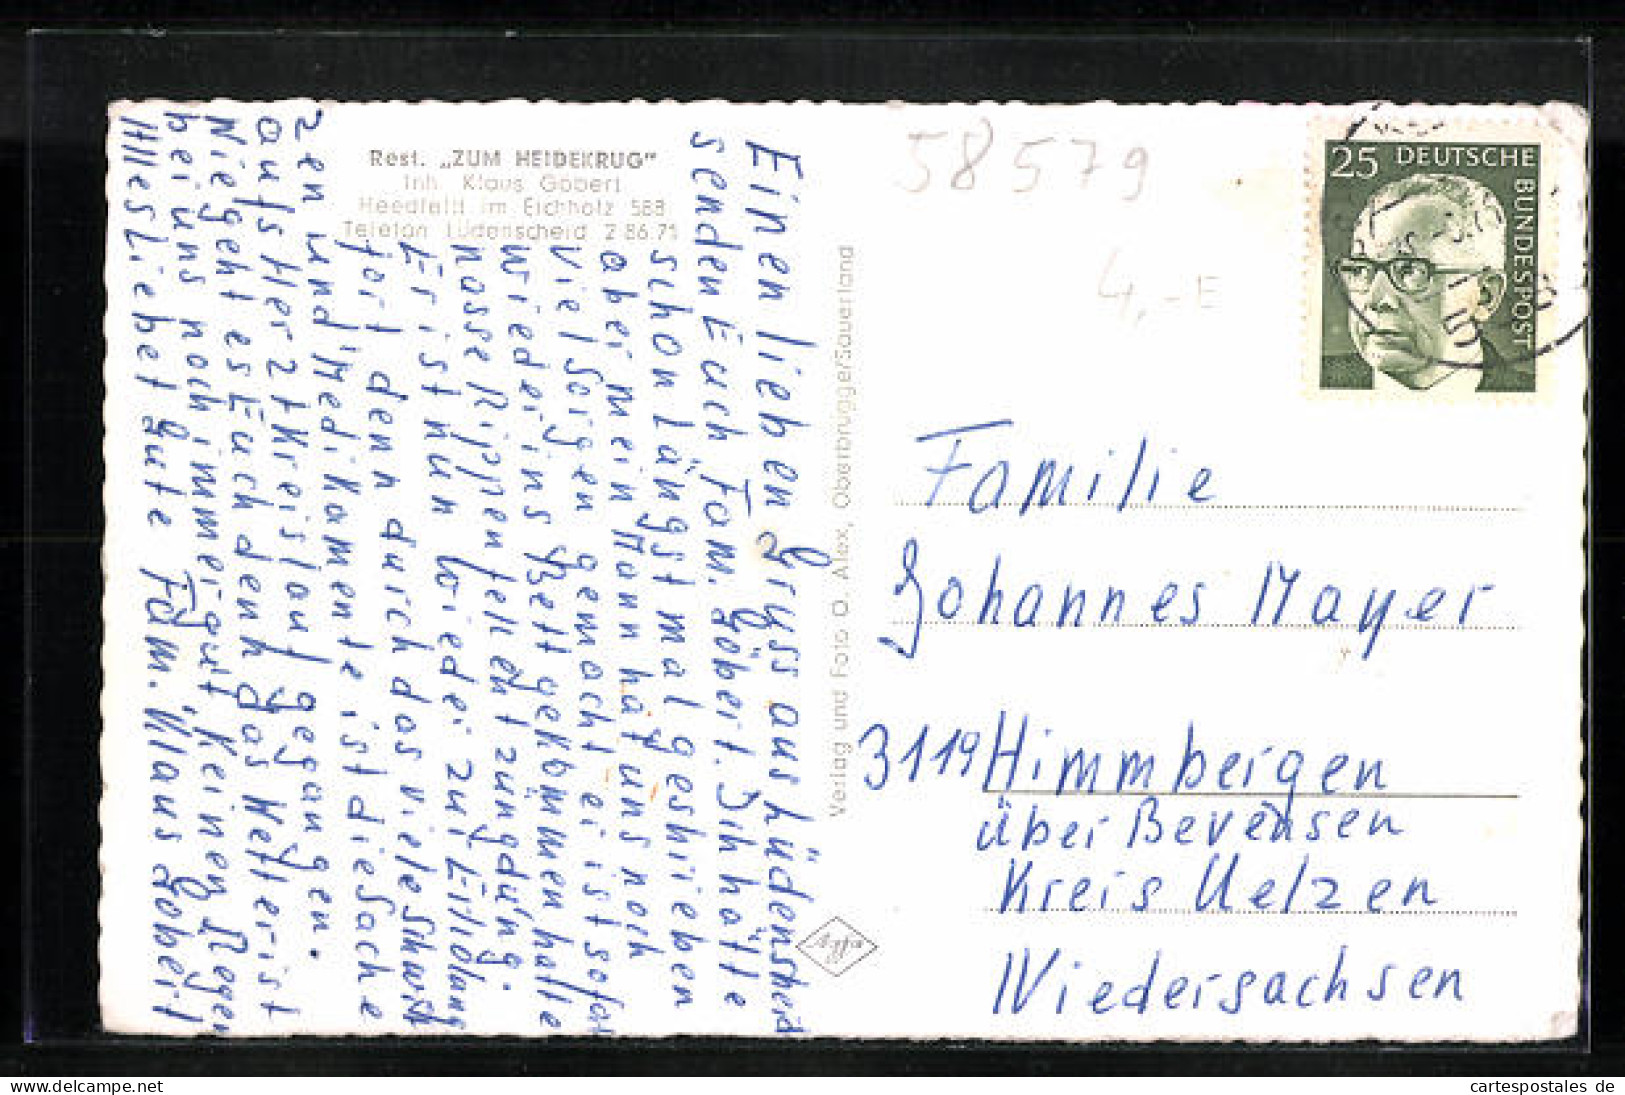 Rest. „ZUM HEIDEKRUG"
Inh. Klaus Göbert
Heedfeld im Eichholz 588
Telefon Lüdenscheid 2 86 71
Einen lieben Gruss aus Lüdenscheid
senden Euch Fam. Göbert. Ich hätte
schon längst mal geshrieben
aber mein Mann hat uns noch
viel Sorgen gemacht er ist sofort
wieder ins Bett gekommen hatte
nasse Rippenfellentzüngdung.
Er ist nun wieder zur Erholung
fort denn durch das viele Schwit
zen und Medikamente ist die Sache
aufs Herz + Kreislauf gegangen.
Wie geht es Euch denn das Wetter ist
bei uns noch immer gut, keinen Regen
Alles Liebe + gute Fam. Klaus Göbert
Verlag und Foto O. Alex, Oberbrügge/Sauerland
58579
4,-E
25 DEUTSCHE
BUNDESPOST
Familie
Johannes Mayer
3119 Himmbergen
über Bevensen
Kreis Uelzen
Niedersachsen
cartespostales de